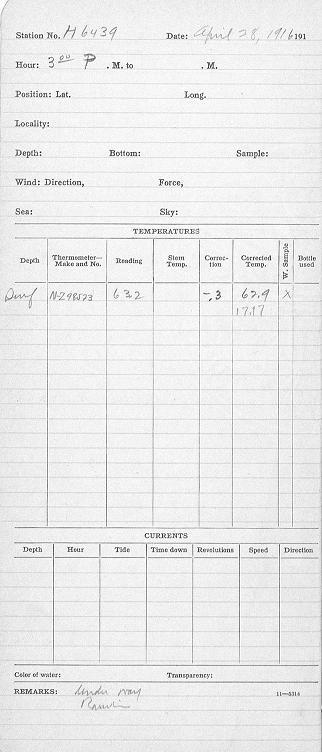 Station No. H 6439 Date: April 28, 1916 191
Hour: 3 00 P . M. to . M.
Position: Lat. Long.
Locality:
Depth: Bottom: Sample:
Wind: Direction, Force,
Sea: Sky:
TEMPERATURES
Depth Thermometer—Make and No. Reading Stem Temp. Correction Corrected Temp. W. Sample Bottle used
Surf N-Z 98523 63.2 -.3 62.9 X
17.17
CURRENTS
Depth Hour Tide Time down Revolutions Speed Direction
Color of water: Transparency:
REMARKS: Under way 11—5314